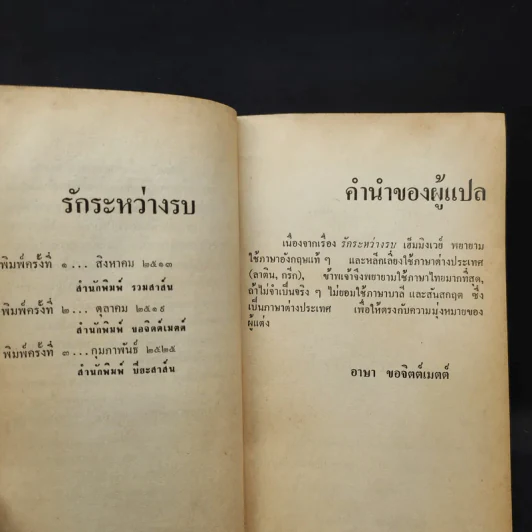 รักระหว่างรบ
พิมพ์ครั้งที่ ๑ ... สิงหาคม ๒๕๑๓
สำนักพิมพ์ รวมสาส์น
พิมพ์ครั้งที่ ๒ ... ตุลาคม ๒๕๑๙
สำนักพิมพ์ ขอจิตต์เมตต์
พิมพ์ครั้งที่ ๓ ... กุมภาพันธ์ ๒๕๒๕
สำนักพิมพ์ ปิยะสาส์น
คำนำของผู้แปล
เนื่องจากเรื่อง รักระหว่างรบ เฮ็มมิงเวย์ พยายาม
ใช้ภาษาอังกฤษแท้ ๆ และหลีกเลี่ยงใช้ภาษาต่างประเทศ
(ลาติน, กรีก), ข้าพเจ้าจึงพยายามใช้ภาษาไทยมากที่สุด,
ถ้าไม่จำเป็นจริง ๆ ไม่ยอมใช้ภาษาบาลี และสันสกฤต ซึ่ง
เป็นภาษาต่างประเทศ เพื่อให้ตรงกับความมุ่งหมายของ
ผู้แต่ง
อาษา ขอจิตต์เมตต์